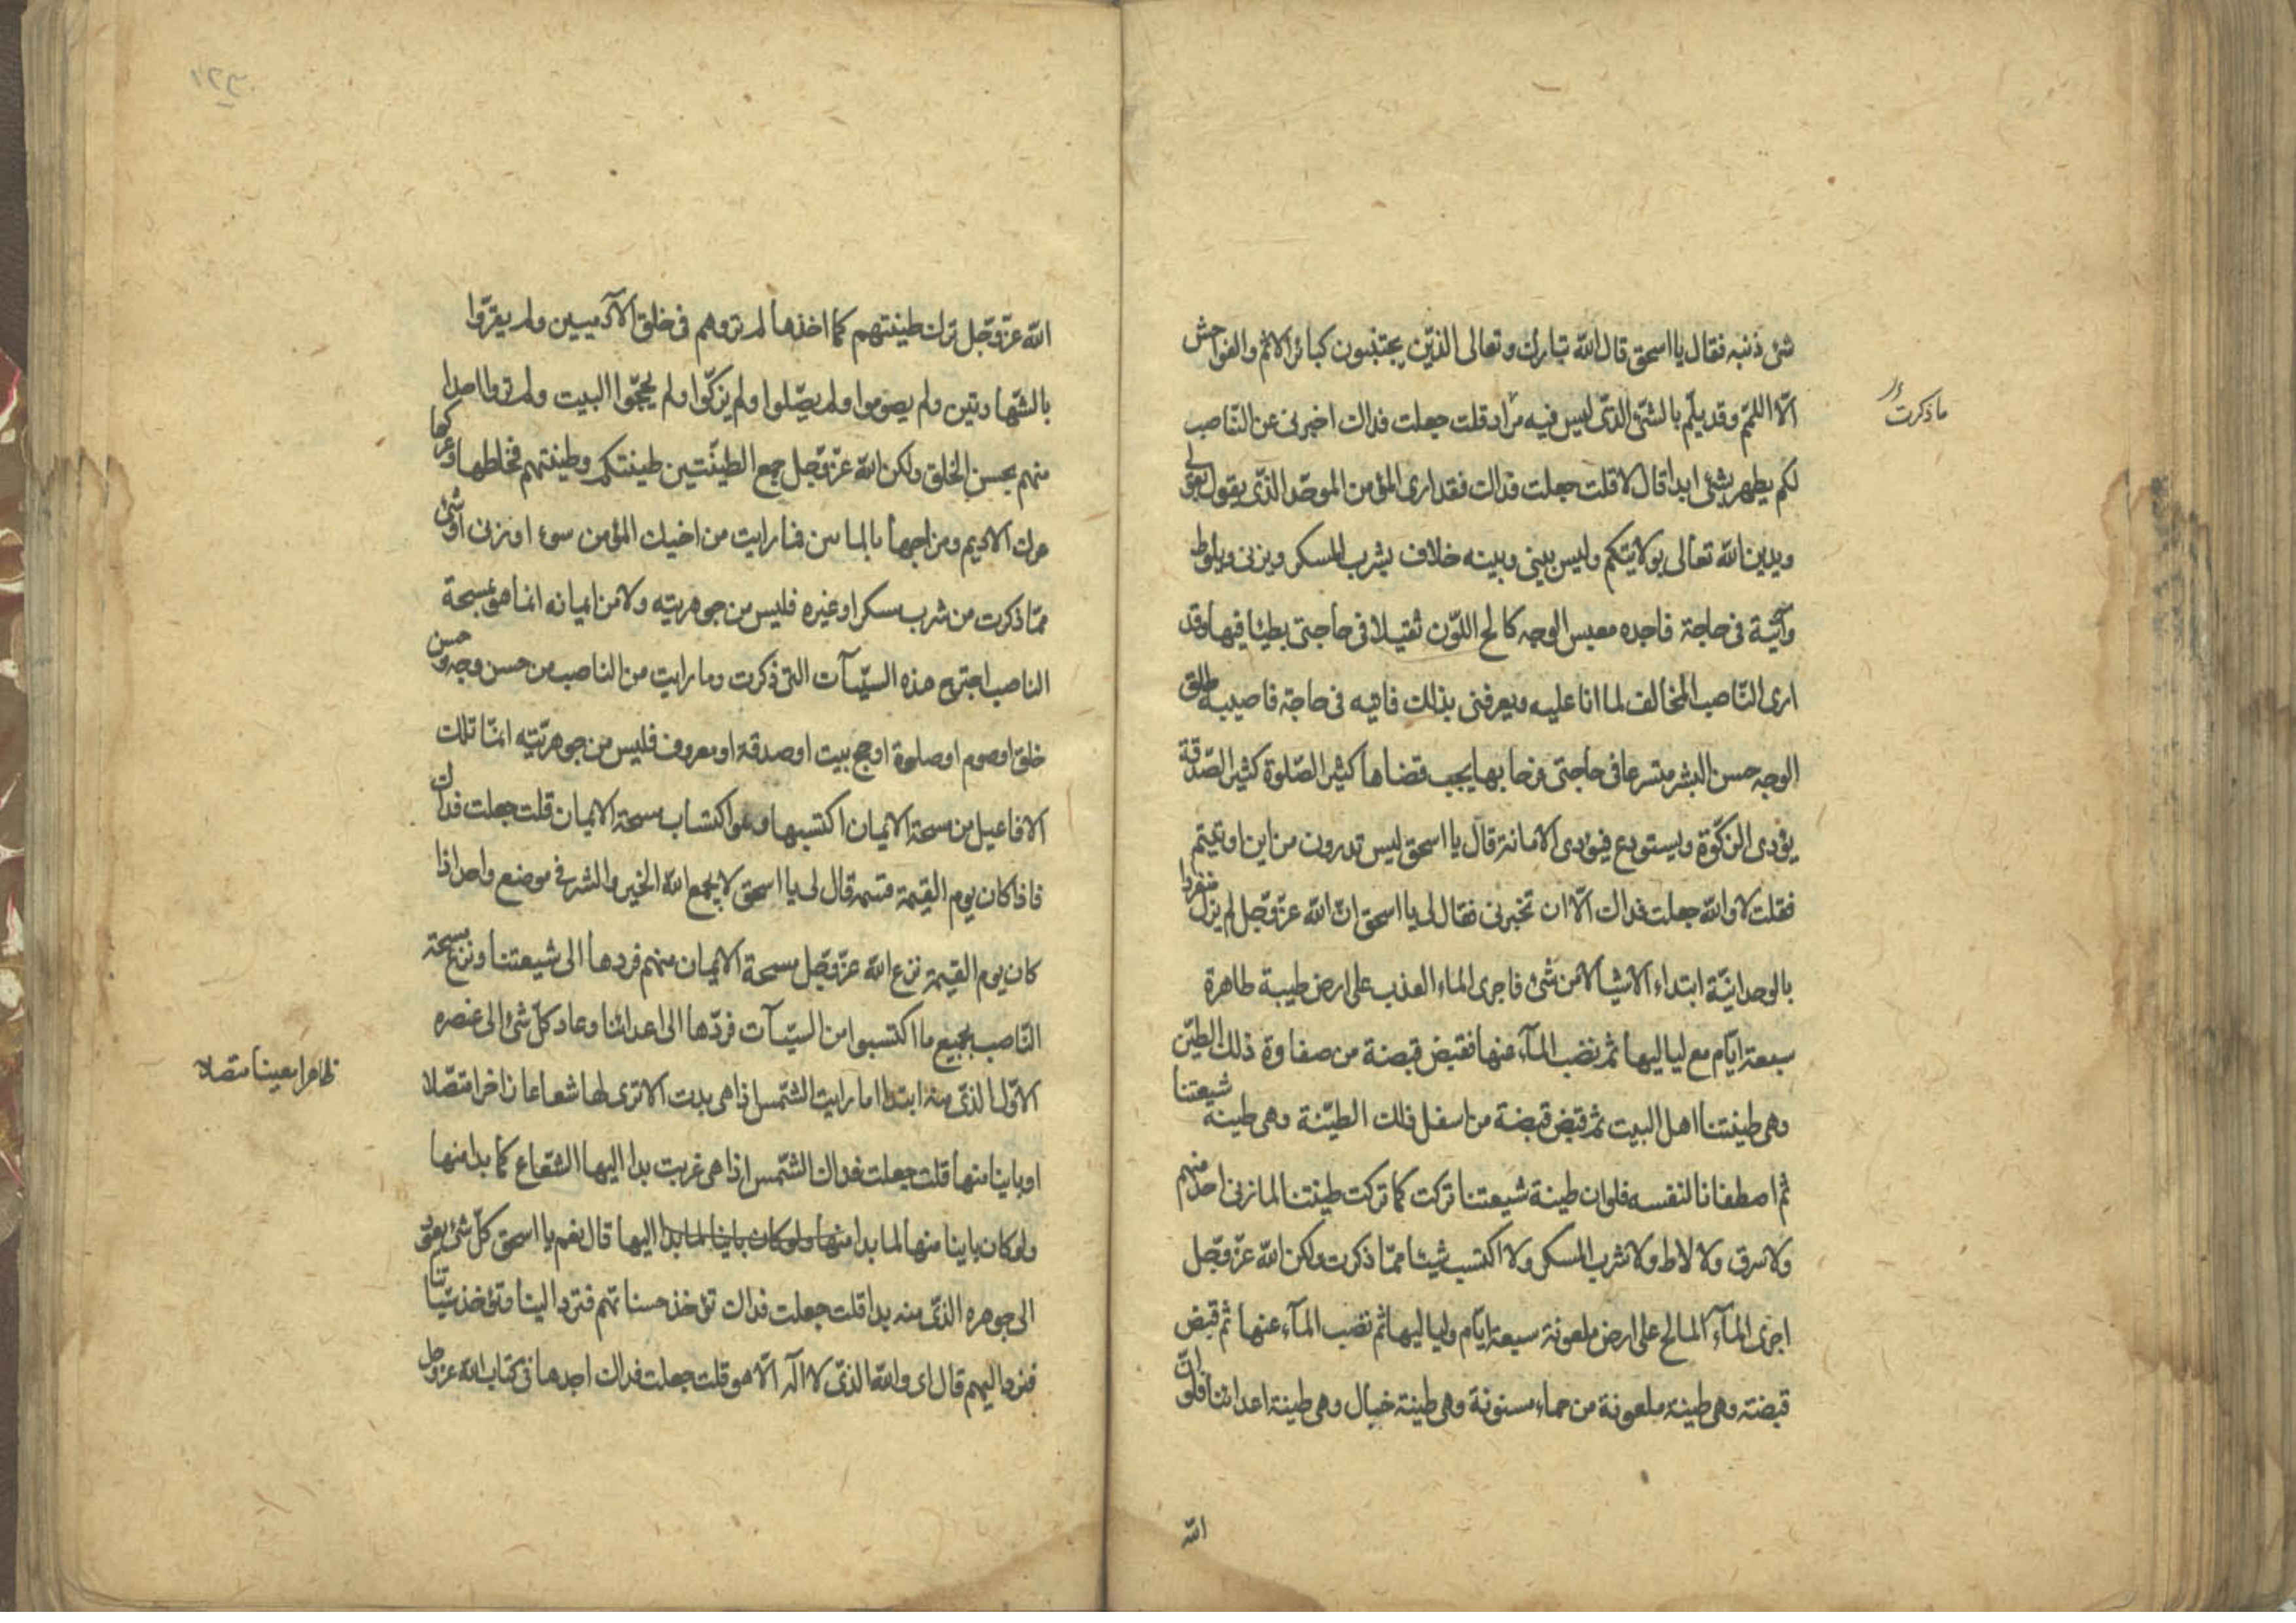 شئ ذنبه فقال يا اسحق قال الله تبارك وتعالى الذين يجتنبون كبائر الاثم والفواحش
الّا اللمم وقد يلم بالشئ الذى ليس فيه مراد قلت جعلت فداك اخبرنى عن الناصب
ما ذكرت
لكم يطهر بشئ ابدا قال لا قلت جعلت فداك فقد ارى المؤمن الموحد الذى يقول بقولى
ويدين الله تعالى بولايتكم وليس بينى وبينه خلاف يشرب المسكر ويزنى ويلوط
وآتيه فى حاجة فاجده معبس الوجه كالح اللون ثقيلا فى حاجتى بطيئا فيها وقد
ارى الناصب المخالف لما انا عليه ويعرفنى بذلك فاتيه فى حاجة فاصيبه طلق
الوجه حسن البشر متسرعا فى حاجتى فرحا بها يحب قضاها كثير الصلوة كثير الصدقة
يؤدى الزكوة ويستودع فيؤدى الامانة قال يا اسحق ليس تدرون من اين اوتيتم
فقلت لا والله جعلت فداك الّا ان تخبرنى فقال لى يا اسحق انّ الله عزّ وجّل لم يزل منفردا
بالوحدانيّة ابتداء الاشيا لا من شئ فاجرى الماء العذب على ارض طيبة طاهرة
سبعة ايّام مع لياليها ثم نضب المآء عنها فقبض قبضة من صفاوة ذلك الطين
وهى طينتنا اهل البيت ثم قبض قبضة من اسفل ذلك الطينة وهى طينة شيعتنا
ثم اصطفانا لنفسه فلو ان طينة شيعتنا تركت كما تركت طينتنا لما زنى احد منهم
ولا سرق ولا لاط ولا شرب المسكر ولا اكتسب شيئا ممّا ذكرت ولكن الله عزّ وجّل
اجرى المآء المالح على ارض ملعونة سبعة ايّام ولياليها ثم نضب المآء عنها ثم قبض
قبضته وهى طينة ملعونة من حماء مسنونة وهى طينة خبال وهى طينة اعدائنا فلو انّ
الله
الله عزّ وجّل ترك طينتهم كما اخذها لم تروهم فى خلق الآدميين ولم يقرّوا
بالشهادتين ولم يصوموا ولم يصلوا ولم يزكّوا ولم يحجّوا البيت ولم تروا احدا
منهم بحسن الخلق ولكن الله عزّ وجّل جمع الطينتين طينتكم وطينتهم فخلطها وعركها
عرك الاديم ومزجها بالماءين فما رايت من اخيك المؤمن سوء او زنى او شئ
ممّا ذكرت من شرب مسكر او غيره فليس من جوهريته ولا من ايمانه انما هو بمسحة
الناصب اجترح هذه السيّئات التى ذكرت وما رايت من الناصب من حسن وجه وحسن
خلق او صوم او صلوة او حج بيت او صدقة او معروف فليس من جوهريّته انما تلك
الافاعيل من مسحة الايمان اكتسبها وهو اكتساب مسحة الايمان قلت جعلت فداك
فاذا كان يوم القيمة فمه قال لى يا اسحق لا يجمع الله الخير والشر فى موضع واحد اذا
كان يوم القيمة نزع الله عزّ وجّل مسحة الايمان منهم فردها الى شيعتنا ونزع مسحة
الناصب بجميع ما اكتسبوا من السيّئات فردّها الى اعدائنا وعاد كلّ شئ الى عنصره
الاوّل الذى منه ابتدا اما رايت الشمس اذا هى بدت الا ترى لها شعاعا زاخرا متصلا
ظاهرا معينا متصلا
او باينا منها قلت جعلت فداك الشمس اذا هى غربت بدا اليها الشعاع كما بدا منها
ولو كان باينا منها لما بدا منها ولو كان باينا لما بدا اليها قال نعم يا اسحق كلّ شئ يعود
الى جوهره الذى منه بدا قلت جعلت فداك تؤخذ حسناتهم فترد الينا وتؤخذ سيّئاتنا
فترد اليهم قال اى والله الذى لا اله الّا هو قلت جعلت فداك اجدها فى كتاب الله عزّ وجل